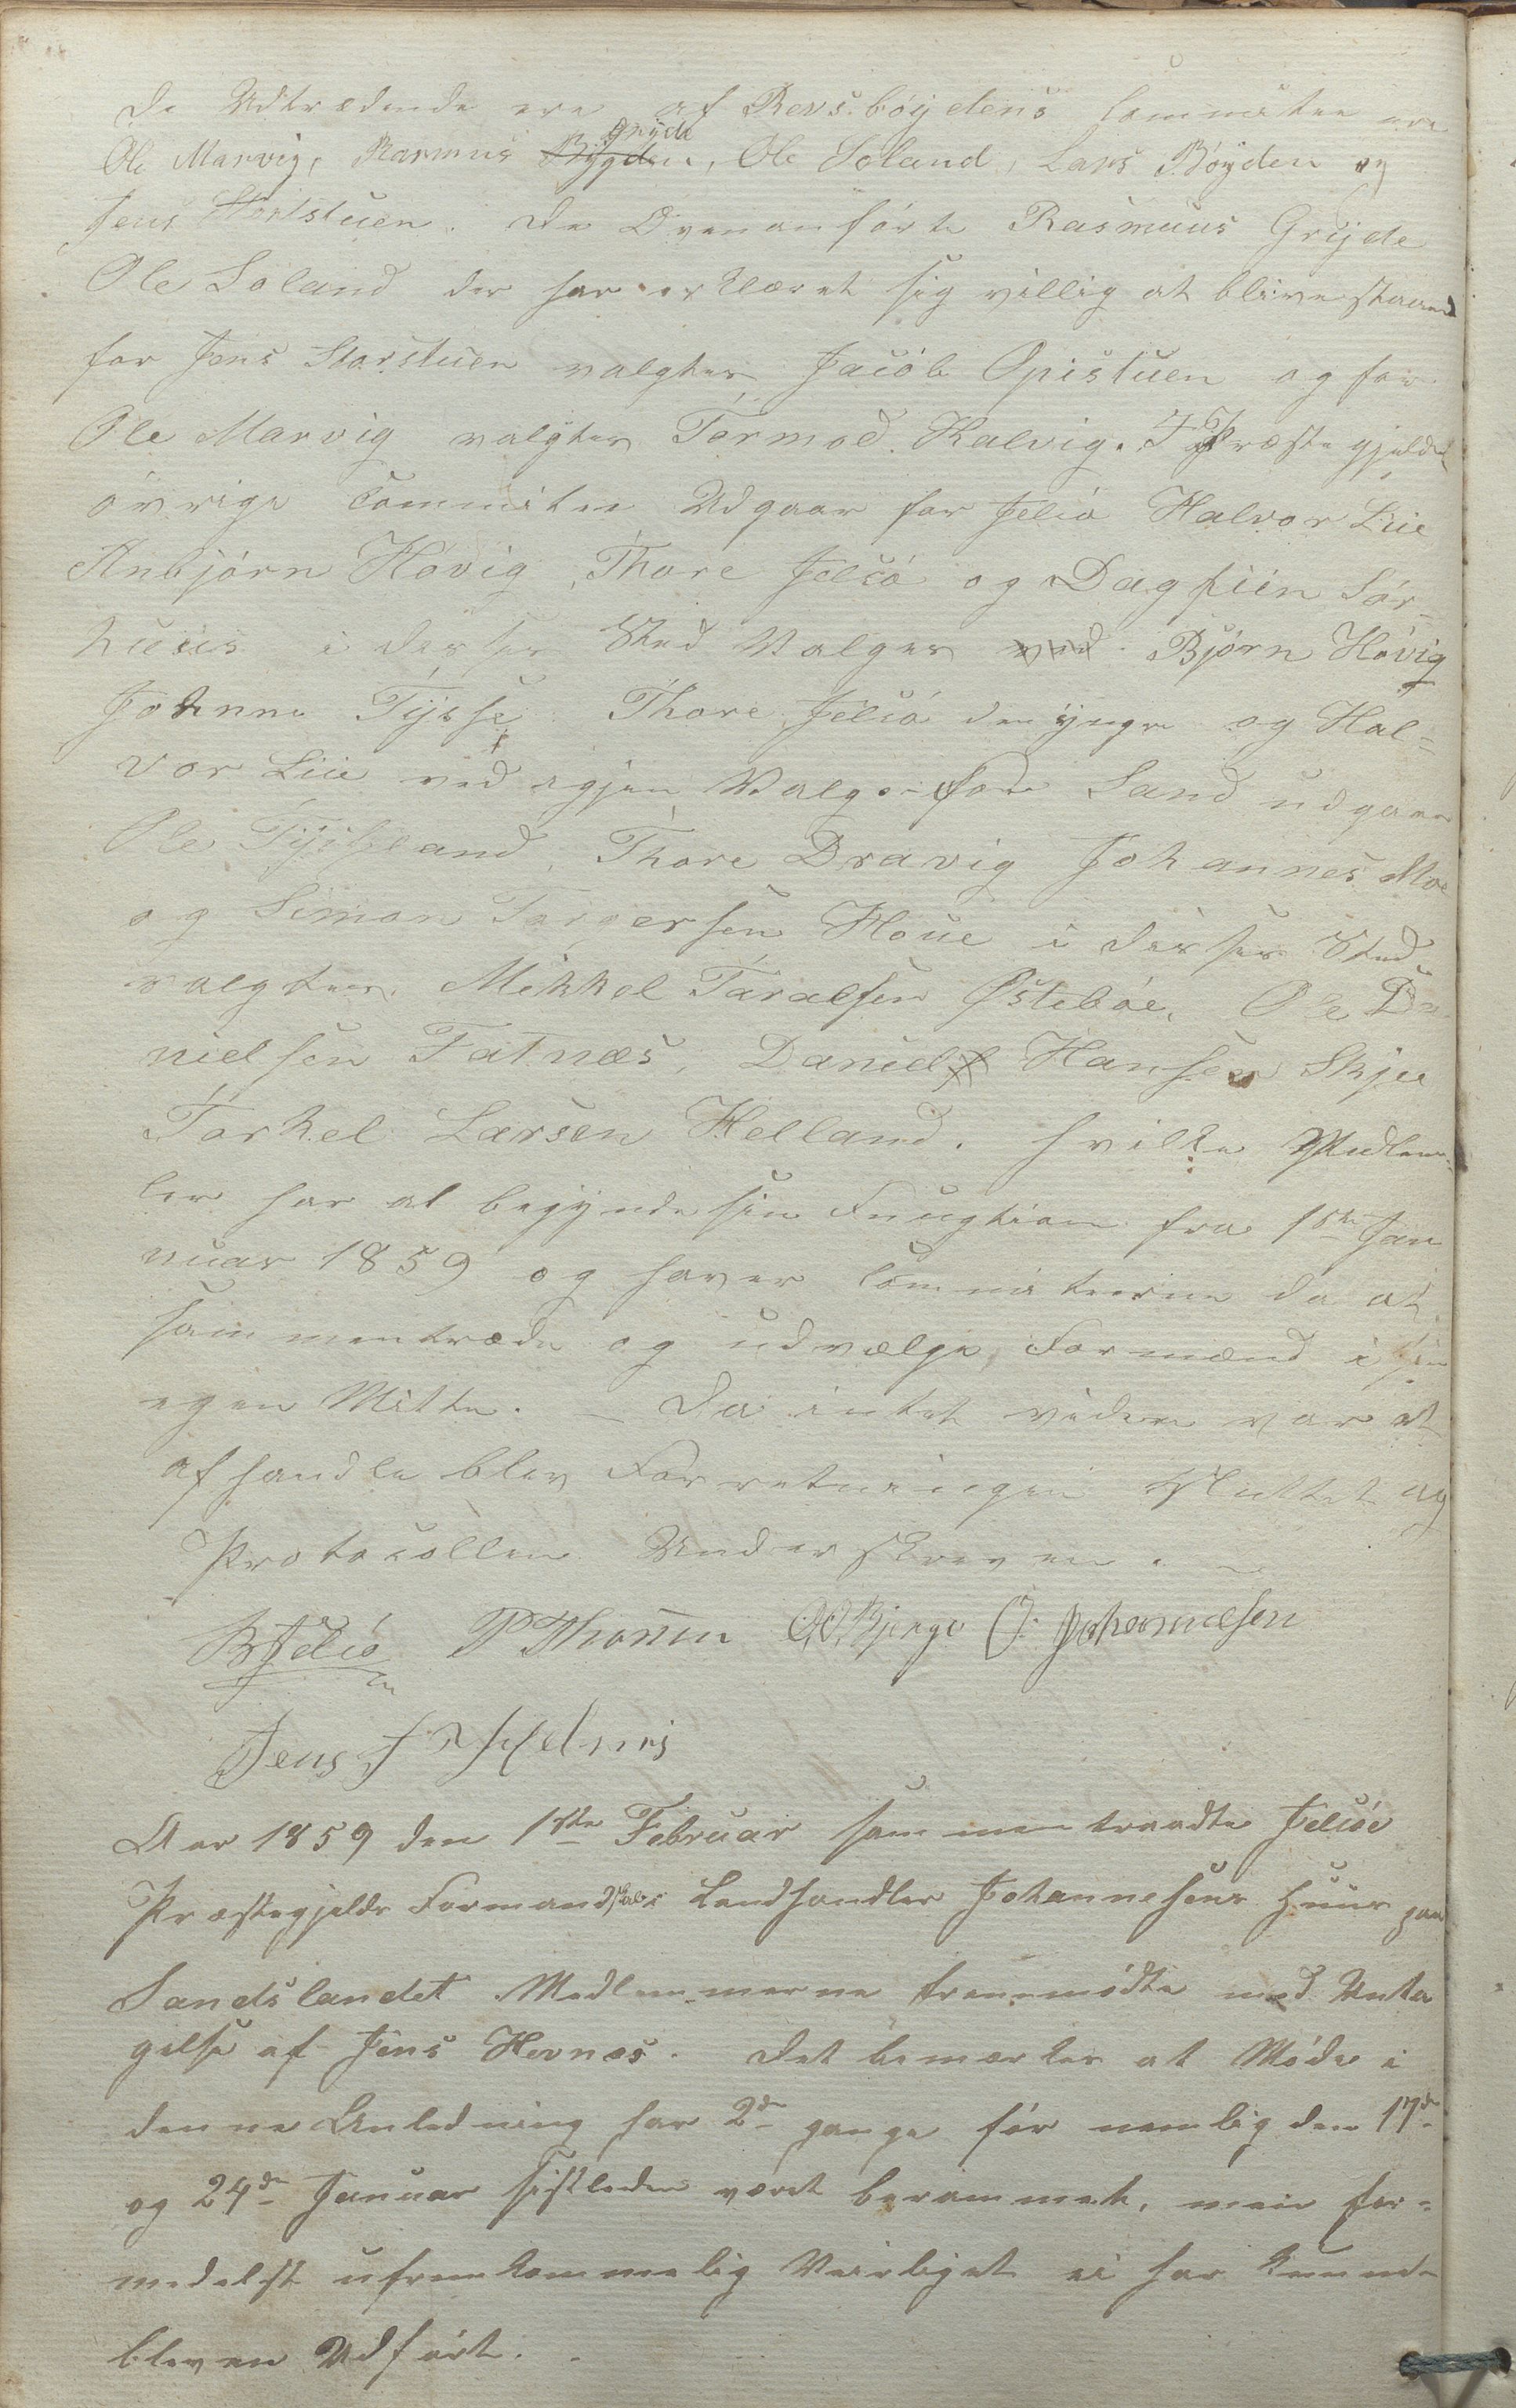 De Udtrædende ere af Revs.böydens Committee ere
Ole Marvig, Rasmus Gryde, Ole Soland, Lars Böyden og
Jens Storstuen. De Ovenanförte Rasmuus Gryde
Ole Soland der har erklæret sig villig at blive staaend
for Jens Storstuen valgtes Jacob Opistuen og for
Ole Marvig valgtes Tormod Kalvig. I Præstegjeldets
övrige Committee Udgaar for Jelsö Halvor Lie
Anbjörn Hövig, Thore Jelsö og Dagfiin Sör-
huus i derses Sted Valges Björn Hövig
Johanne Tysse Thore Jelsö den yngre og Hal=
vor Lie ved egjen Valg. For Sand udgaar
Ole Tysseland, Thore Dravig Johannes Moe
og Simon Torgersen Houe i derses Sted
valgtes Mikkel Taralsen Östeböe, Ole Da-
nielsen Fatnæs, Daniel Hansen Skjei
Torkel Larsen Helland. hvilke Medlem-
ler har at begynde sin Fungtion fra 1ste Jan
nuar 1859 og haver Committeerne da at
sammentræde og udvælge Formænd i sin
egen Mitte. _ Da intet videre var at
afhandle blev Forretningen Sluttet og
Protocollen Underskreven. _
B Jelsö P Thorsen O.O. Bjerge O: Johannesen
Jens J
Aar 1859 den 1ste Februar sammentraadte Jelsöe
Præstegjelds Formandskab i Landhandler Johannesens Huus paa
Sandslandet Medlemmerne fremmödte med Unta
gelse af Jens Hevnæs. Det bemærkes at Möde i
denne Anledning har 2de gange för nemlig den 17de
og 24de Januar sistleden været berammet, men for-
medelst ufremkommelig Veirligat ei har kunnet
bleven Udfört.